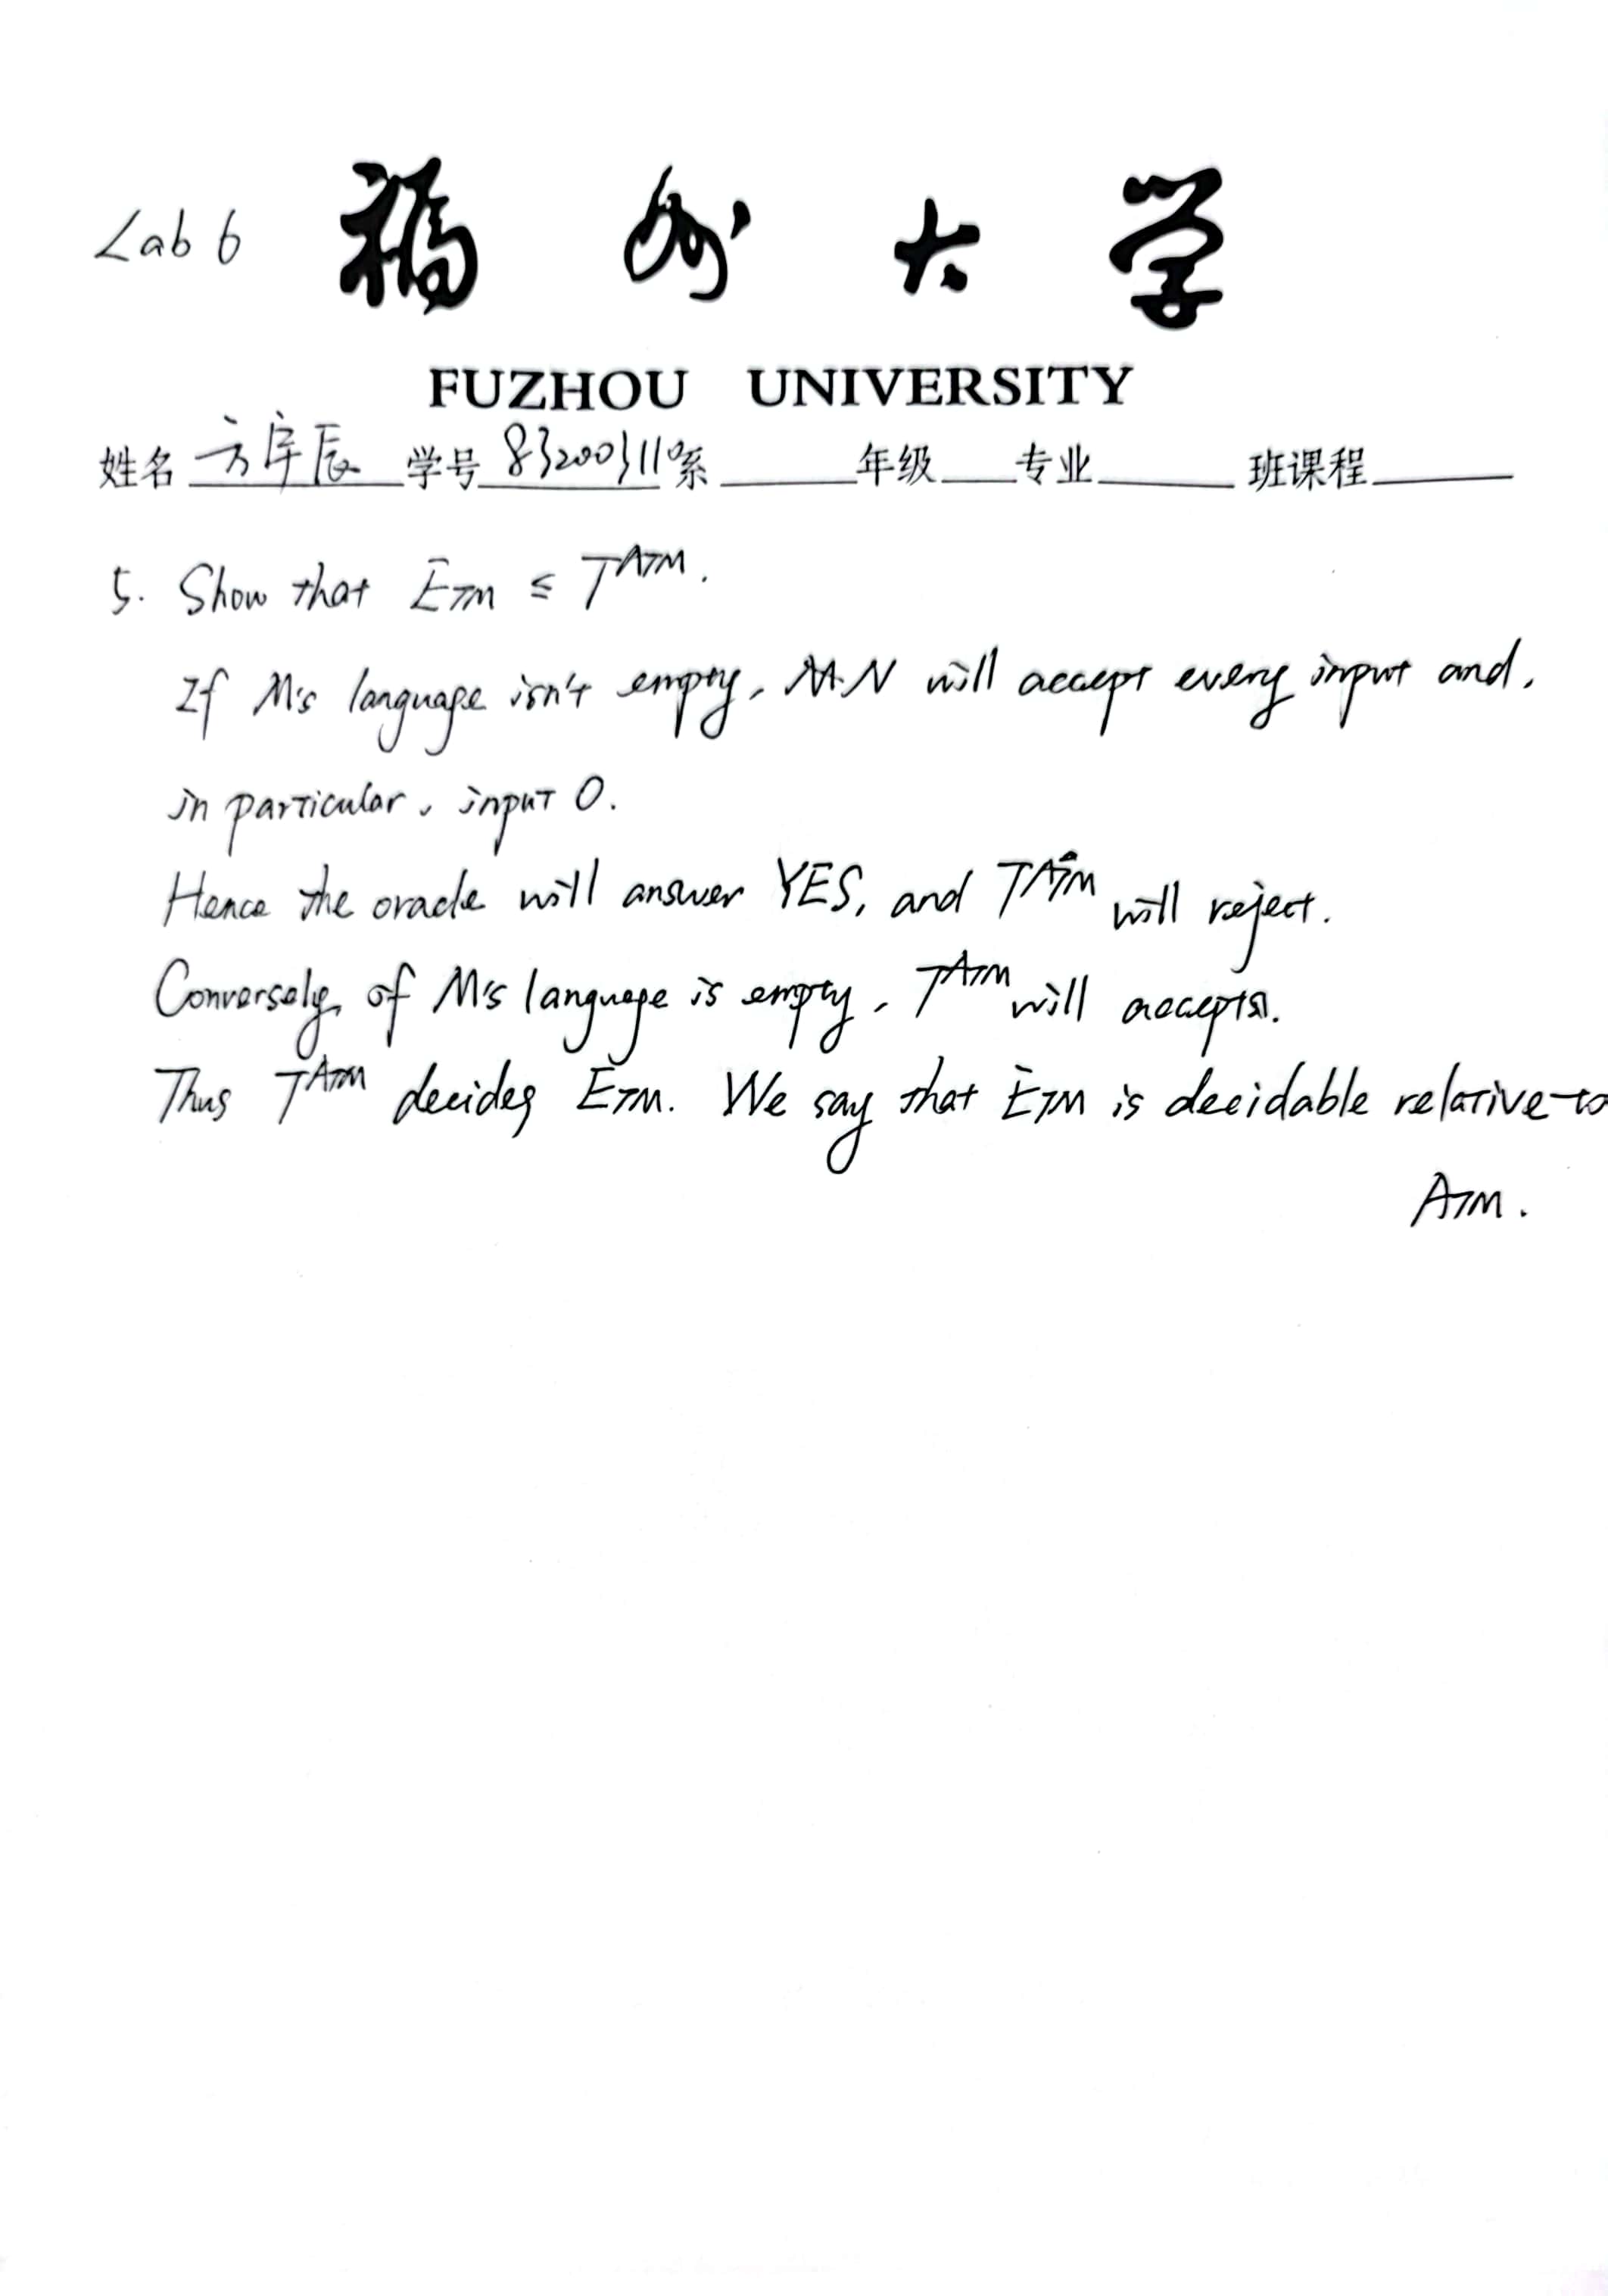 Lab 6 福州大学
FUZHOU UNIVERSITY
姓名 方宇辰 学号 832003110 系 年级 专业 班课程
5. Show that ETM ≤ T^ATM.
If M's language isn't empty, N will accept every input and,
in particular, input 0.
Hence the oracle will answer YES, and T^ATM will reject.
Conversely, of M's language is empty, T^ATM will accepts.
Thus T^ATM decides ETM. We say that ETM is decidable relative to
ATM.